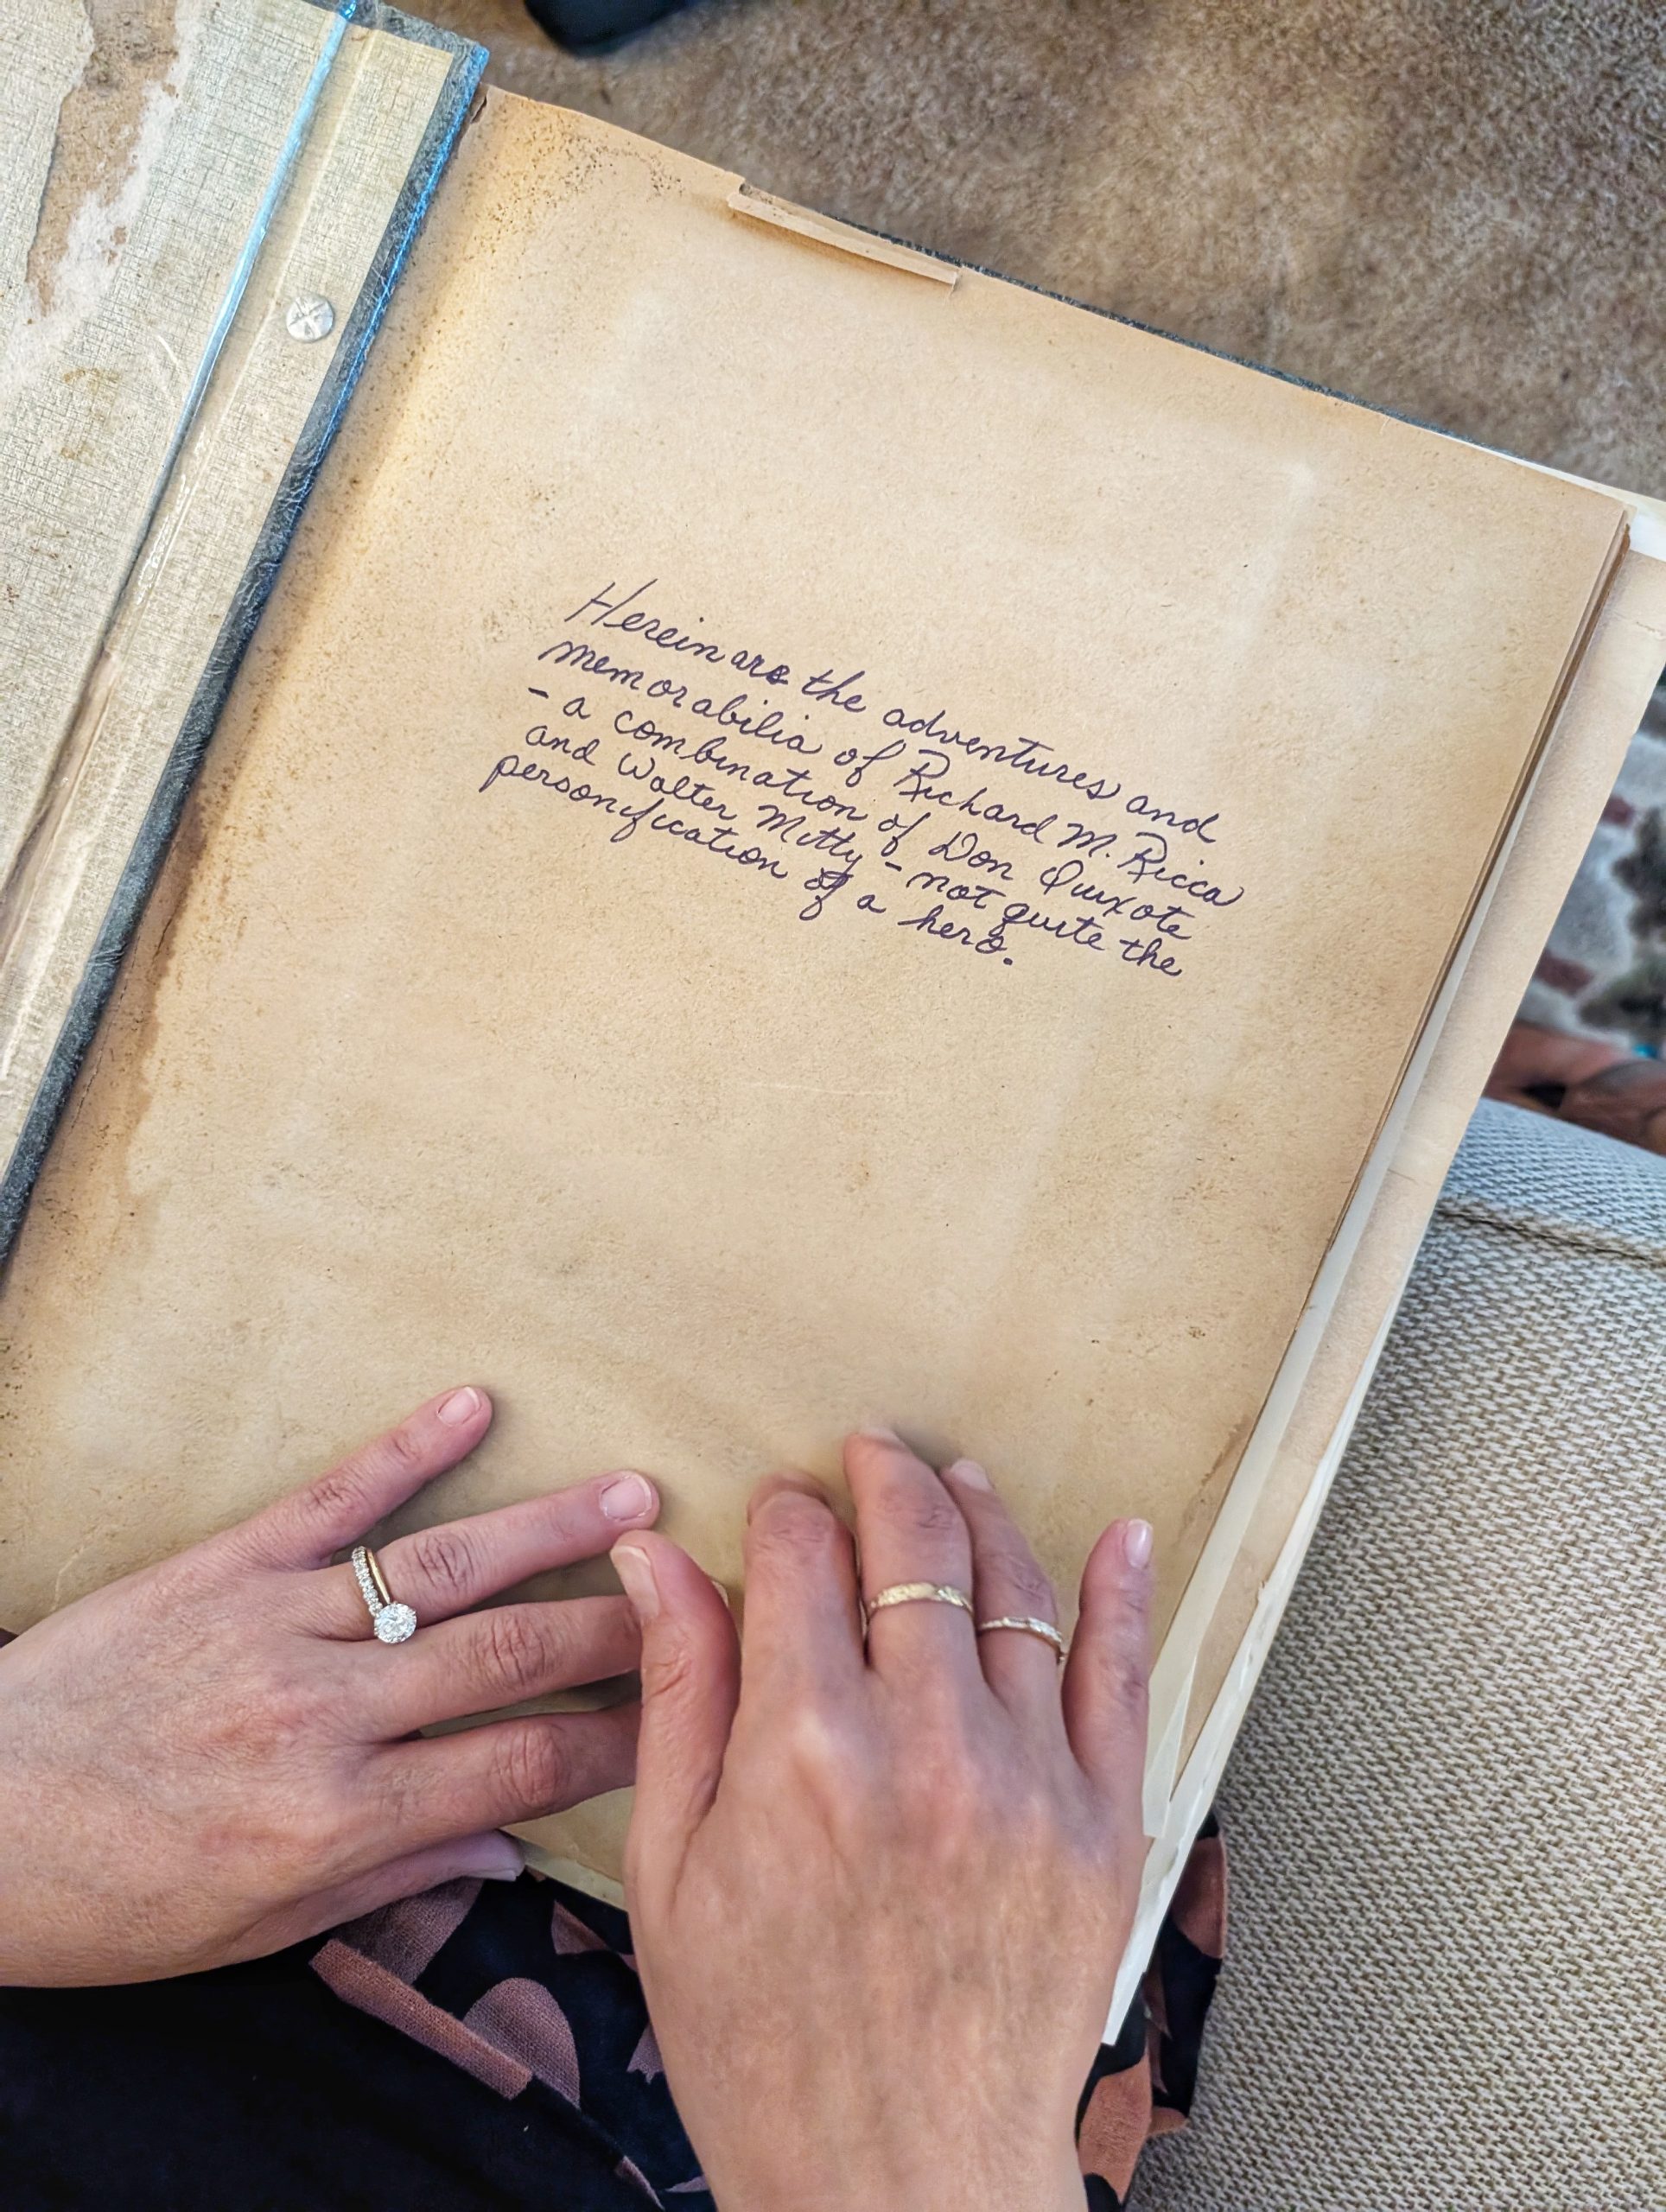 Herein are the adventures and
memorabilia of Richard M. Ricca
- a combination of Don Quixote
and Walter Mitty - not quite the
personification of a hero.